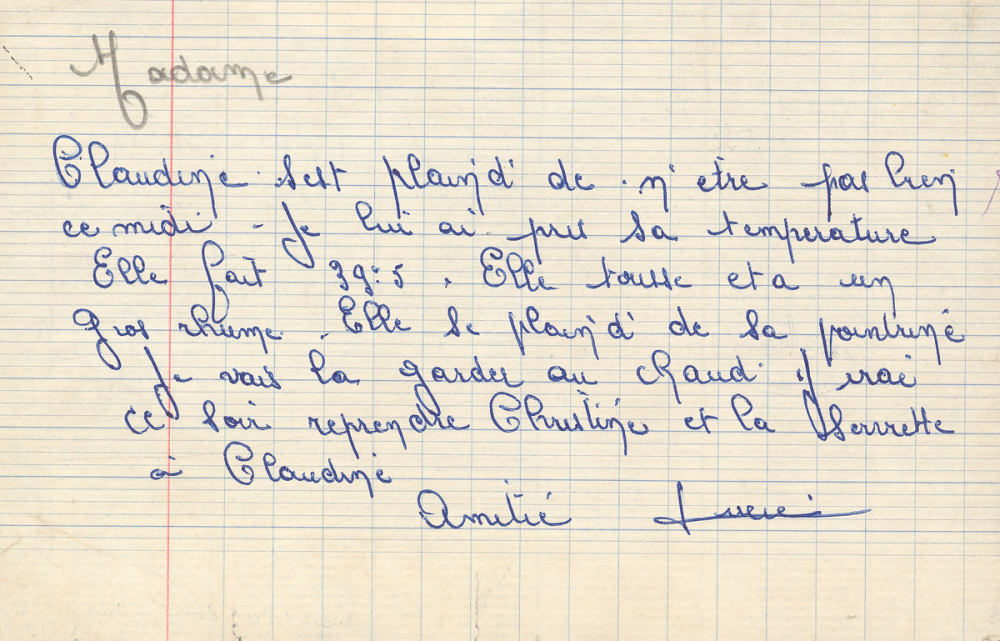 Madame
Claudine s'est plain'd' de n'être pas bien
ce midi - Je lui ai pris sa température
Elle fait 39:5. Elle tousse et a un
Gros rhume. Elle se plain'd' de sa pointrine
Je vais la garder au chaud. J'irai
ce soir reprendre Christine et la Serviette
à Claudine
Amitié